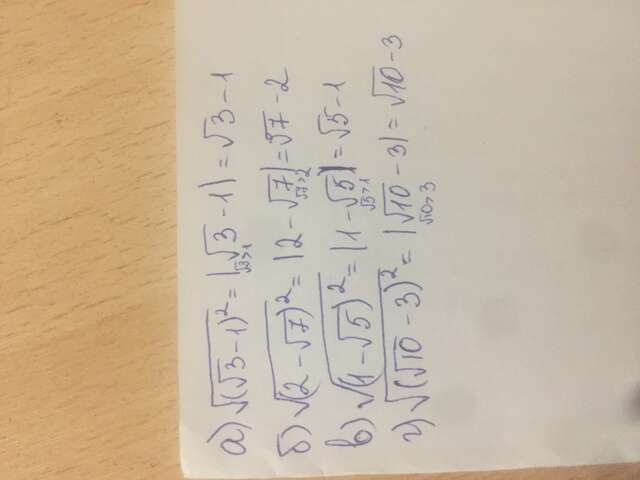 а) √(√3-1)² = |√3 - 1| = √3 - 1
√3>1
б) √(2-√7)² = |2 - √7| = √7 - 2
√7>2
в) √(1-√5)² = |1 - √5| = √5 - 1
√5>1
г) √(√10 - 3)² = |√10 - 3| = √10 - 3
√10>3